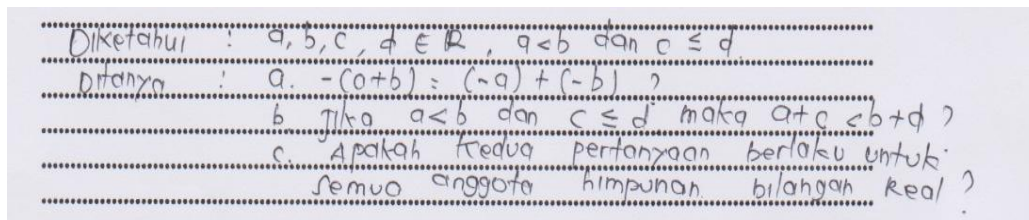 Diketahui : a, b, c, d ∈ R, a<b dan c ≤ d.
Ditanya : a. -(a+b) = (-a) + (-b) ?
b. Jika a<b dan c ≤ d maka a+c <b+d ?
c. Apakah kedua pertanyaan berlaku untuk
semua anggota himpunan bilangan Real ?